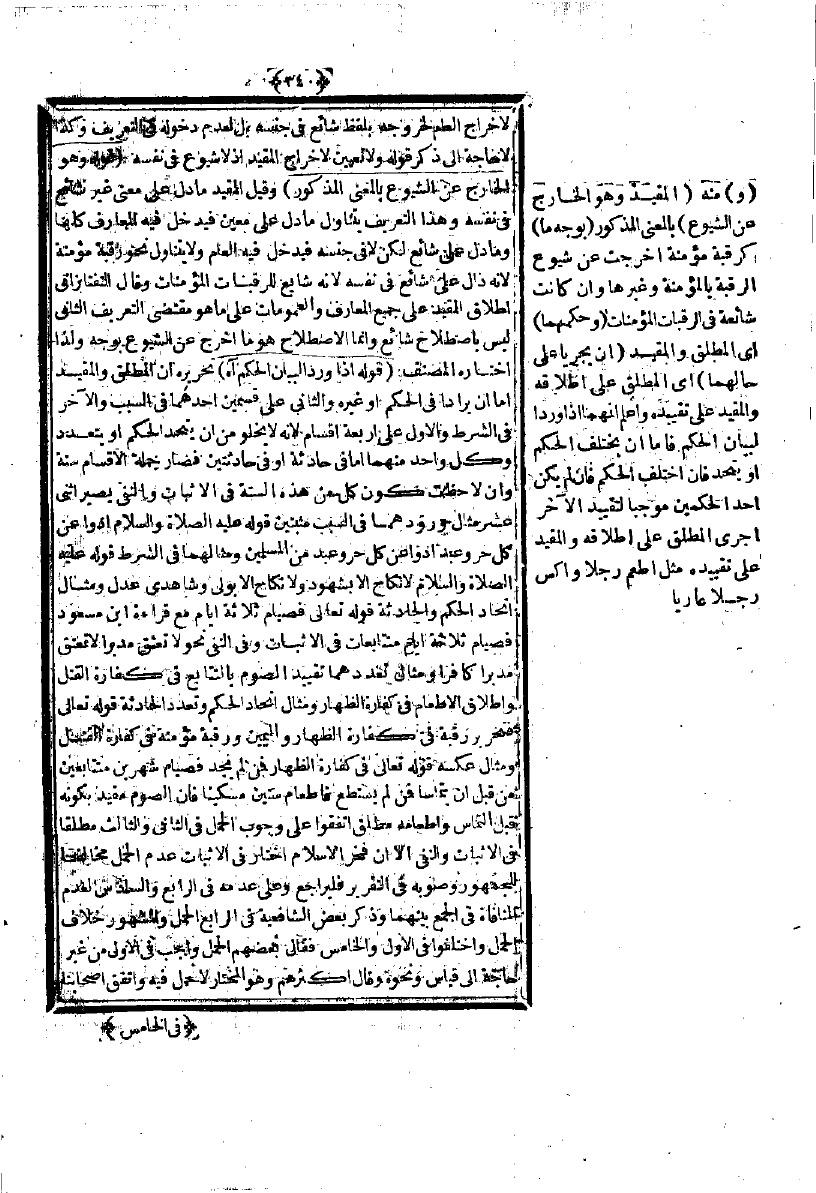 ﴿٣٤٠﴾
لاخراج العلم لخروجه بلفظ شائع فى جنسه بل لعدم دخوله فى التعريف وكذا
لاحاجة الى ذكر قوله ولا تعيين لاخراج المقيد اذ لاشيوع فى نفسه (قوله وهو
الخارج عن الشيوع بالمعنى المذكور) وقيل المقيد مادل على معنى غير شائع
فى نفسه وهذا التعريف يتناول مادل على معين فيدخل فيه المعارف كلها
ومادل على شائع لكن لافى جنسه فيدخل فيه العلم ولايتناول نحو رقبة مؤمنة
لانه دال على شائع فى نفسه لانه شايع للرقبات المؤمنات وقال التفتازانى
اطلاق المقيد على جميع المعارف والعمومات على ماهو مقتضى التعريف الثانى
ليس باصطلاح شائع وانما الاصطلاح هو ما اخرج عن الشيوع بوجه ولذا
اختاره المصنف (قوله اذا ورد البيان الحكم آه) تحريره ان المطلق والمقيد
اما ان يرادا فى الحكم او غيره والثانى على قسمين احدهما فى السبب والآخر
فى الشرط والاول على اربعة اقسام لانه لايخلو من ان يتحد الحكم او يتعدد
وكل واحد منهما اما فى حادثة او فى حادثتين فصار جملة الاقسام ستة
وان لاحظت كون كل من هذه الستة فى الاثبات والنفى يصير اثنى
عشر مثال ورودهما فى السبب مثبتين قوله عليه الصلاة والسلام ادوا عن
كل حر وعبد ادوا عن كل حر وعبد من المسلمين ومثالهما فى الشرط قوله عليه
الصلاة والسلام لانكاح الا بشهود ولا نكاح الا بولى وشاهدى عدل ومثال
اتحاد الحكم والحادثة قوله تعالى فصيام ثلاثة ايام مع قراءة ابن مسعود
فصيام ثلاثة ايام متتابعات فى الاثبات وفى النفى نحو لا تعتق مدبرا لاتعتق
مدبرا كافرا ومثال تعددهما تقييد الصوم بالتتابع فى كفارة القتل
واطلاق الاطعام فى كفارة الظهار ومثال اتحاد الحكم وتعدد الحادثة قوله تعالى
فتحرير رقبة فى كفارة الظهار واليمين ورقبة مؤمنة فى كفارة القتل
ومثال عكسه قوله تعالى فى كفارة الظهار فمن لم يجد فصيام شهرين متتابعين
من قبل ان يتماسا فمن لم يستطع فاطعام ستين مسكينا فان الصوم مقيد بكونه
قبل التماس واطعامه مطلق اتفقوا على وجوب الحمل فى الثانى والثالث مطلقا
فى الاثبات والنفى الا ان فخر الاسلام اختار فى الاثبات عدم الحمل مخالفا
للجمهور وصوبه فى التقرير فليراجع وعلى عدمه فى الرابع والسادس لعدم
المنافاة فى الجمع بينهما وذكر بعض الشافعية فى الرابع الحمل والمشهور خلاف
الحمل واختلفوا فى الاول والخامس فقال بعضهم الحمل واجب فى الاول من غير
حاجة الى قياس ونحوه وقال اكثرهم وهو المختار لاحمل فيه واتفق اصحابنا
﴿فى الخامس﴾
(و) منه (المقيد وهو الخارج
عن الشيوع) بالمعنى المذكور (بوجه ما)
كرقبة مؤمنة اخرجت عن شيوع
الرقبة بالمؤمنة وغيرها وان كانت
شائعة فى الرقبات المؤمنات (وحكمهما)
اى المطلق والمقيد (ان يجريا على
حالهما) اى المطلق على اطلاقه
والمقيد على تقييده واعلم انهما اذا وردا
لبيان الحكم فاما ان يختلف الحكم
او يتحد فان اختلف الحكم فان لم يكن
احد الحكمين موجبا لتقييد الآخر
اجرى المطلق على اطلاقه والمقيد
على تقييده مثل اطعم رجلا واكس
رجلا عاريا